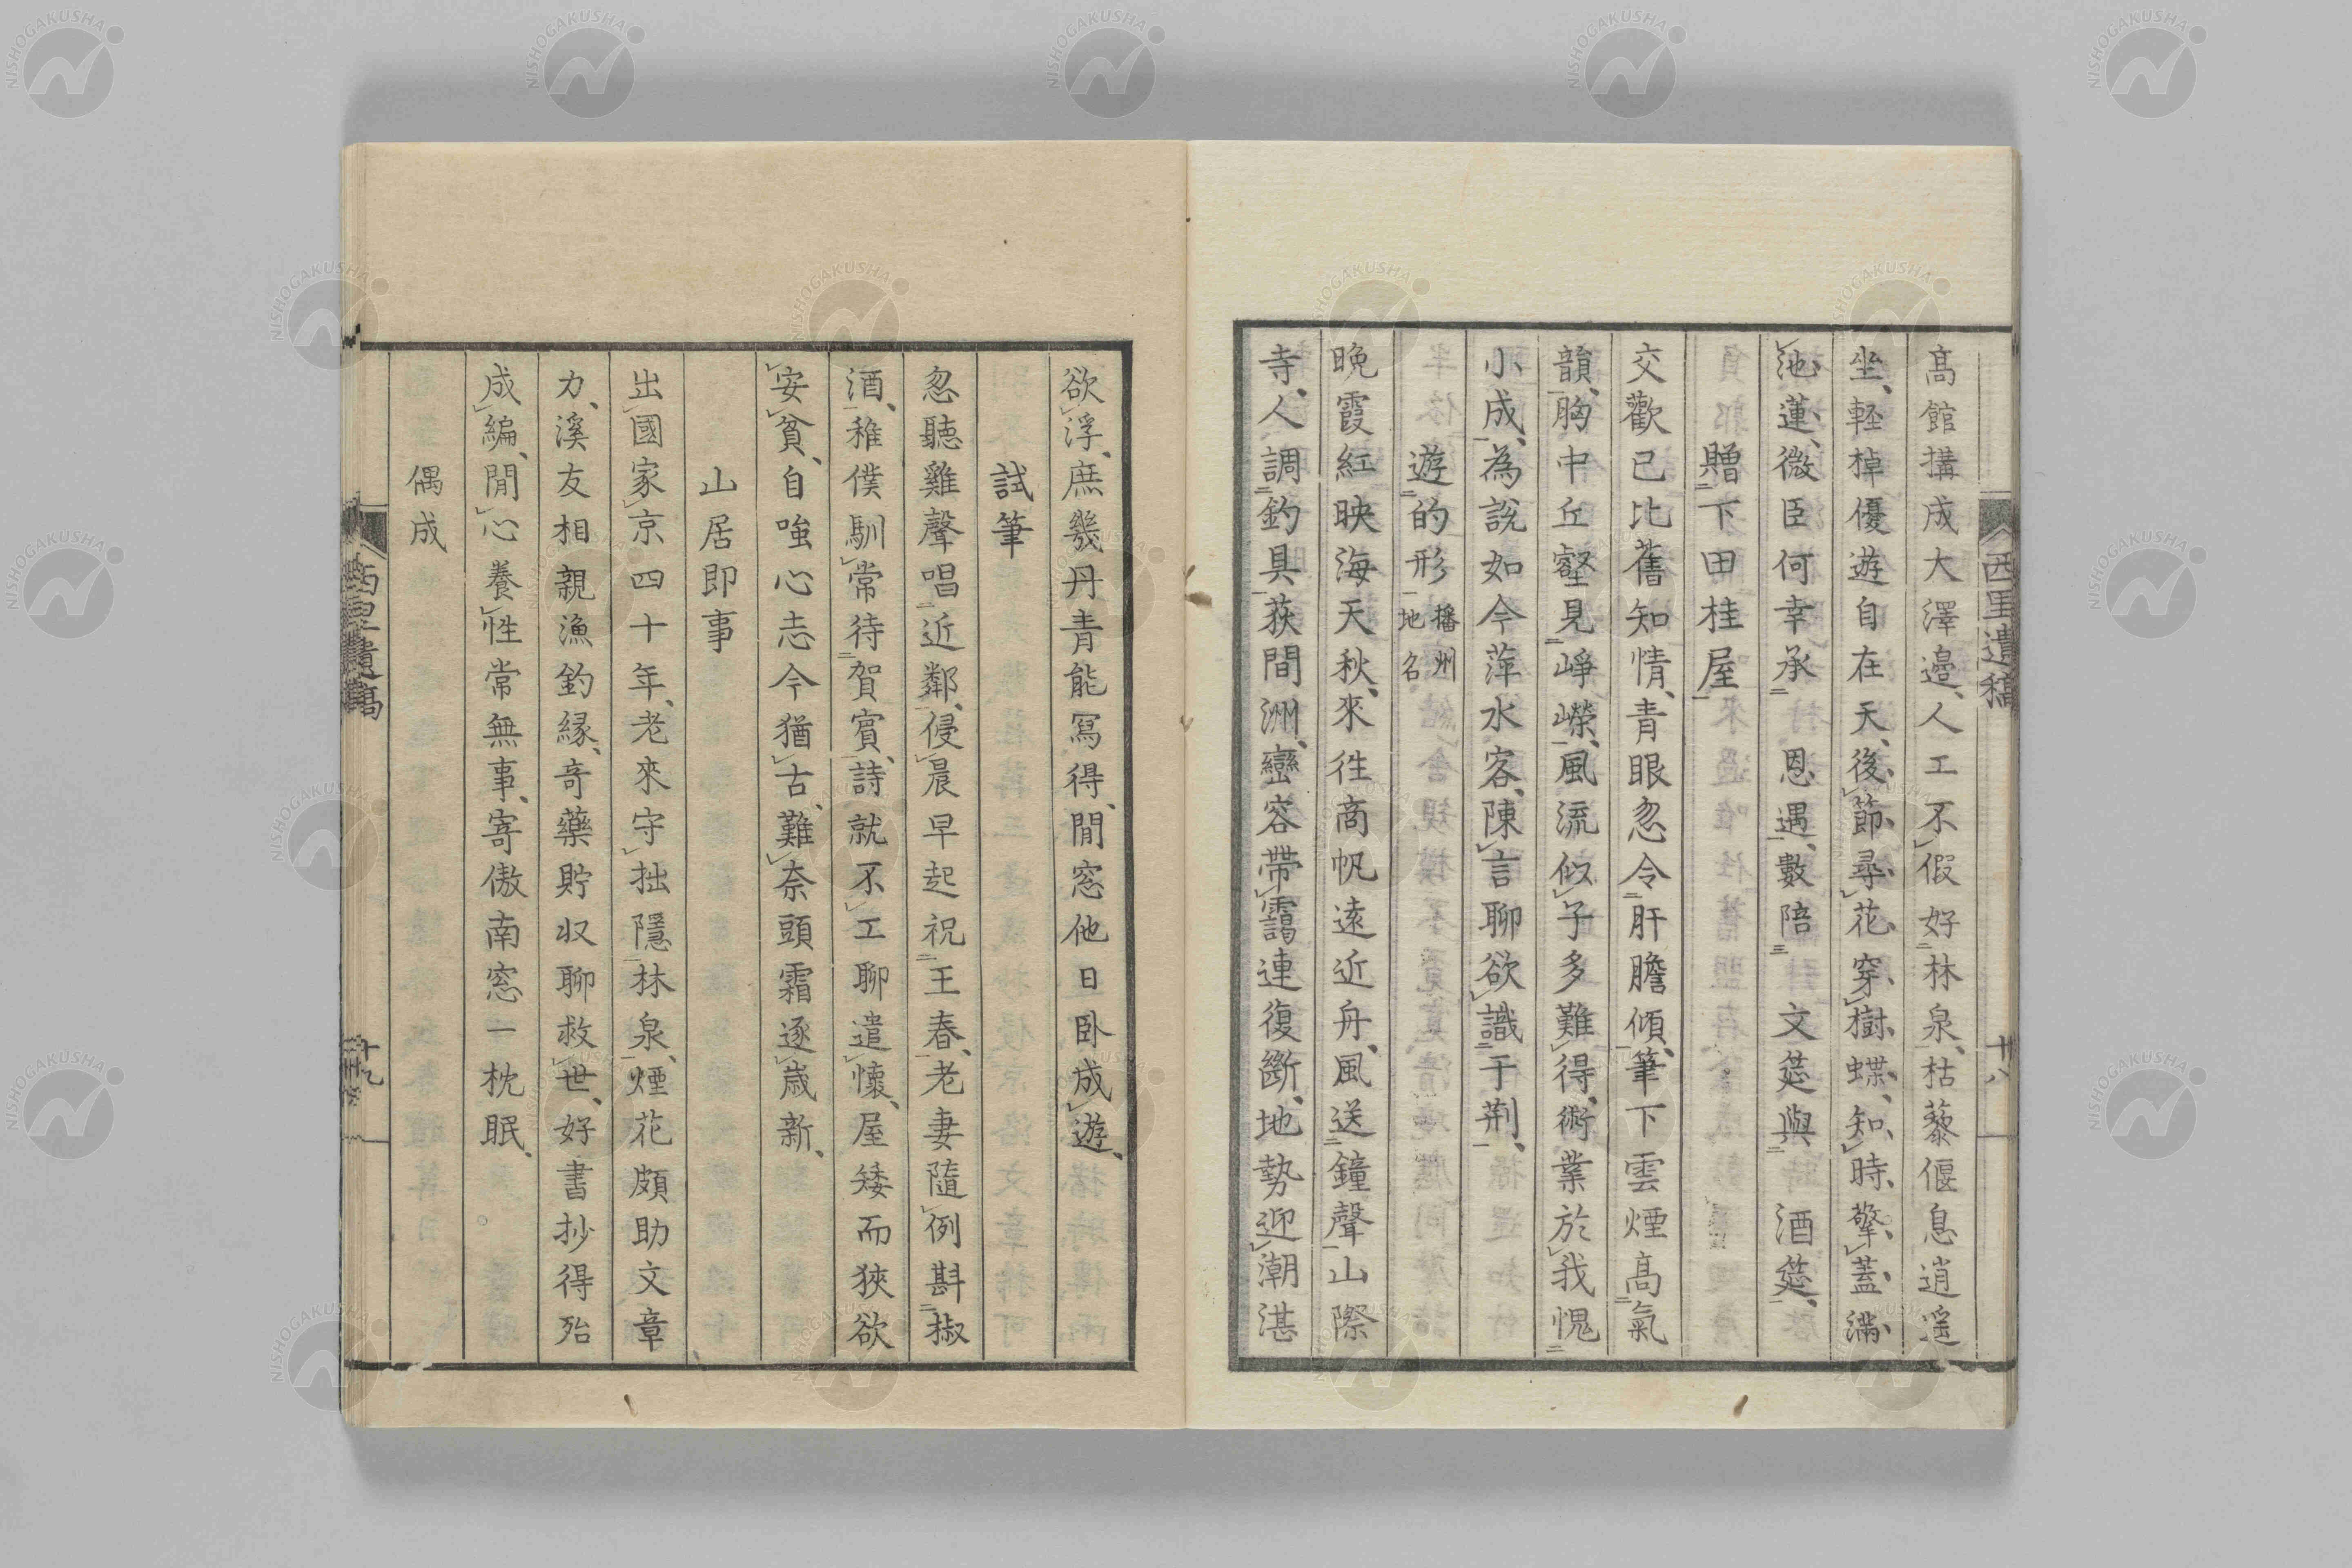 西里遺稿
廿八
髙館搆成大澤邉人工不假好林泉枯藜偃息逍遥
坐輕棹優遊自在天後節尋花穿樹蝶知時擎蓋滿
池蓮微臣何幸承 恩遇數陪 文筵與 酒筵
贈下田桂屋
交歡已比舊知情青眼忽令肝膽傾筆下雲煙髙氣
韻胸中丘壑見崢嶸風流似子多難得術業於我愧
小成為説如今萍水容陳言聊欲識于荆
遊的形播州地名
晩霞紅映海天秋來徃商帆遠近舟風送鐘聲山際
寺人調釣具荻間洲巒容帶靄連復斷地勢迎潮湛
欲浮庶幾丹青能冩得閒窓他日卧成遊
試筆
忽聽雞聲唱近鄰侵晨早起祝王春老妻隨例斟椒
酒稚僕馴常待賀賓詩就不工聊遣懷屋矮而狹欲
安貧自嗤心志今猶古難奈頭霜逐歳新
山居即事
出國家京四十年老來守拙隱林泉煙花頗助文章
力溪友相親漁釣縁竒藥貯収聊救世好書抄得殆
成編閒心養性常無事寄傲南窓一枕眠
偶成
西里遺稿
NISHOGAKUSHA